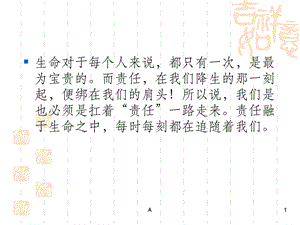 吉祥
如意
生命对于每个人来说，都只有一次，是最
为宝贵的。而责任，在我们降生的那一刻
起，便绑在我们的肩头！所以说，我们是
也必须是扛着“责任”一路走来。责任融
于生命之中，每时每刻都在追随着我们。
A
1